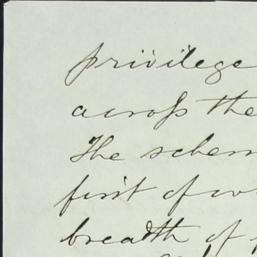 privilege
across the
The schem
first of
breadth of